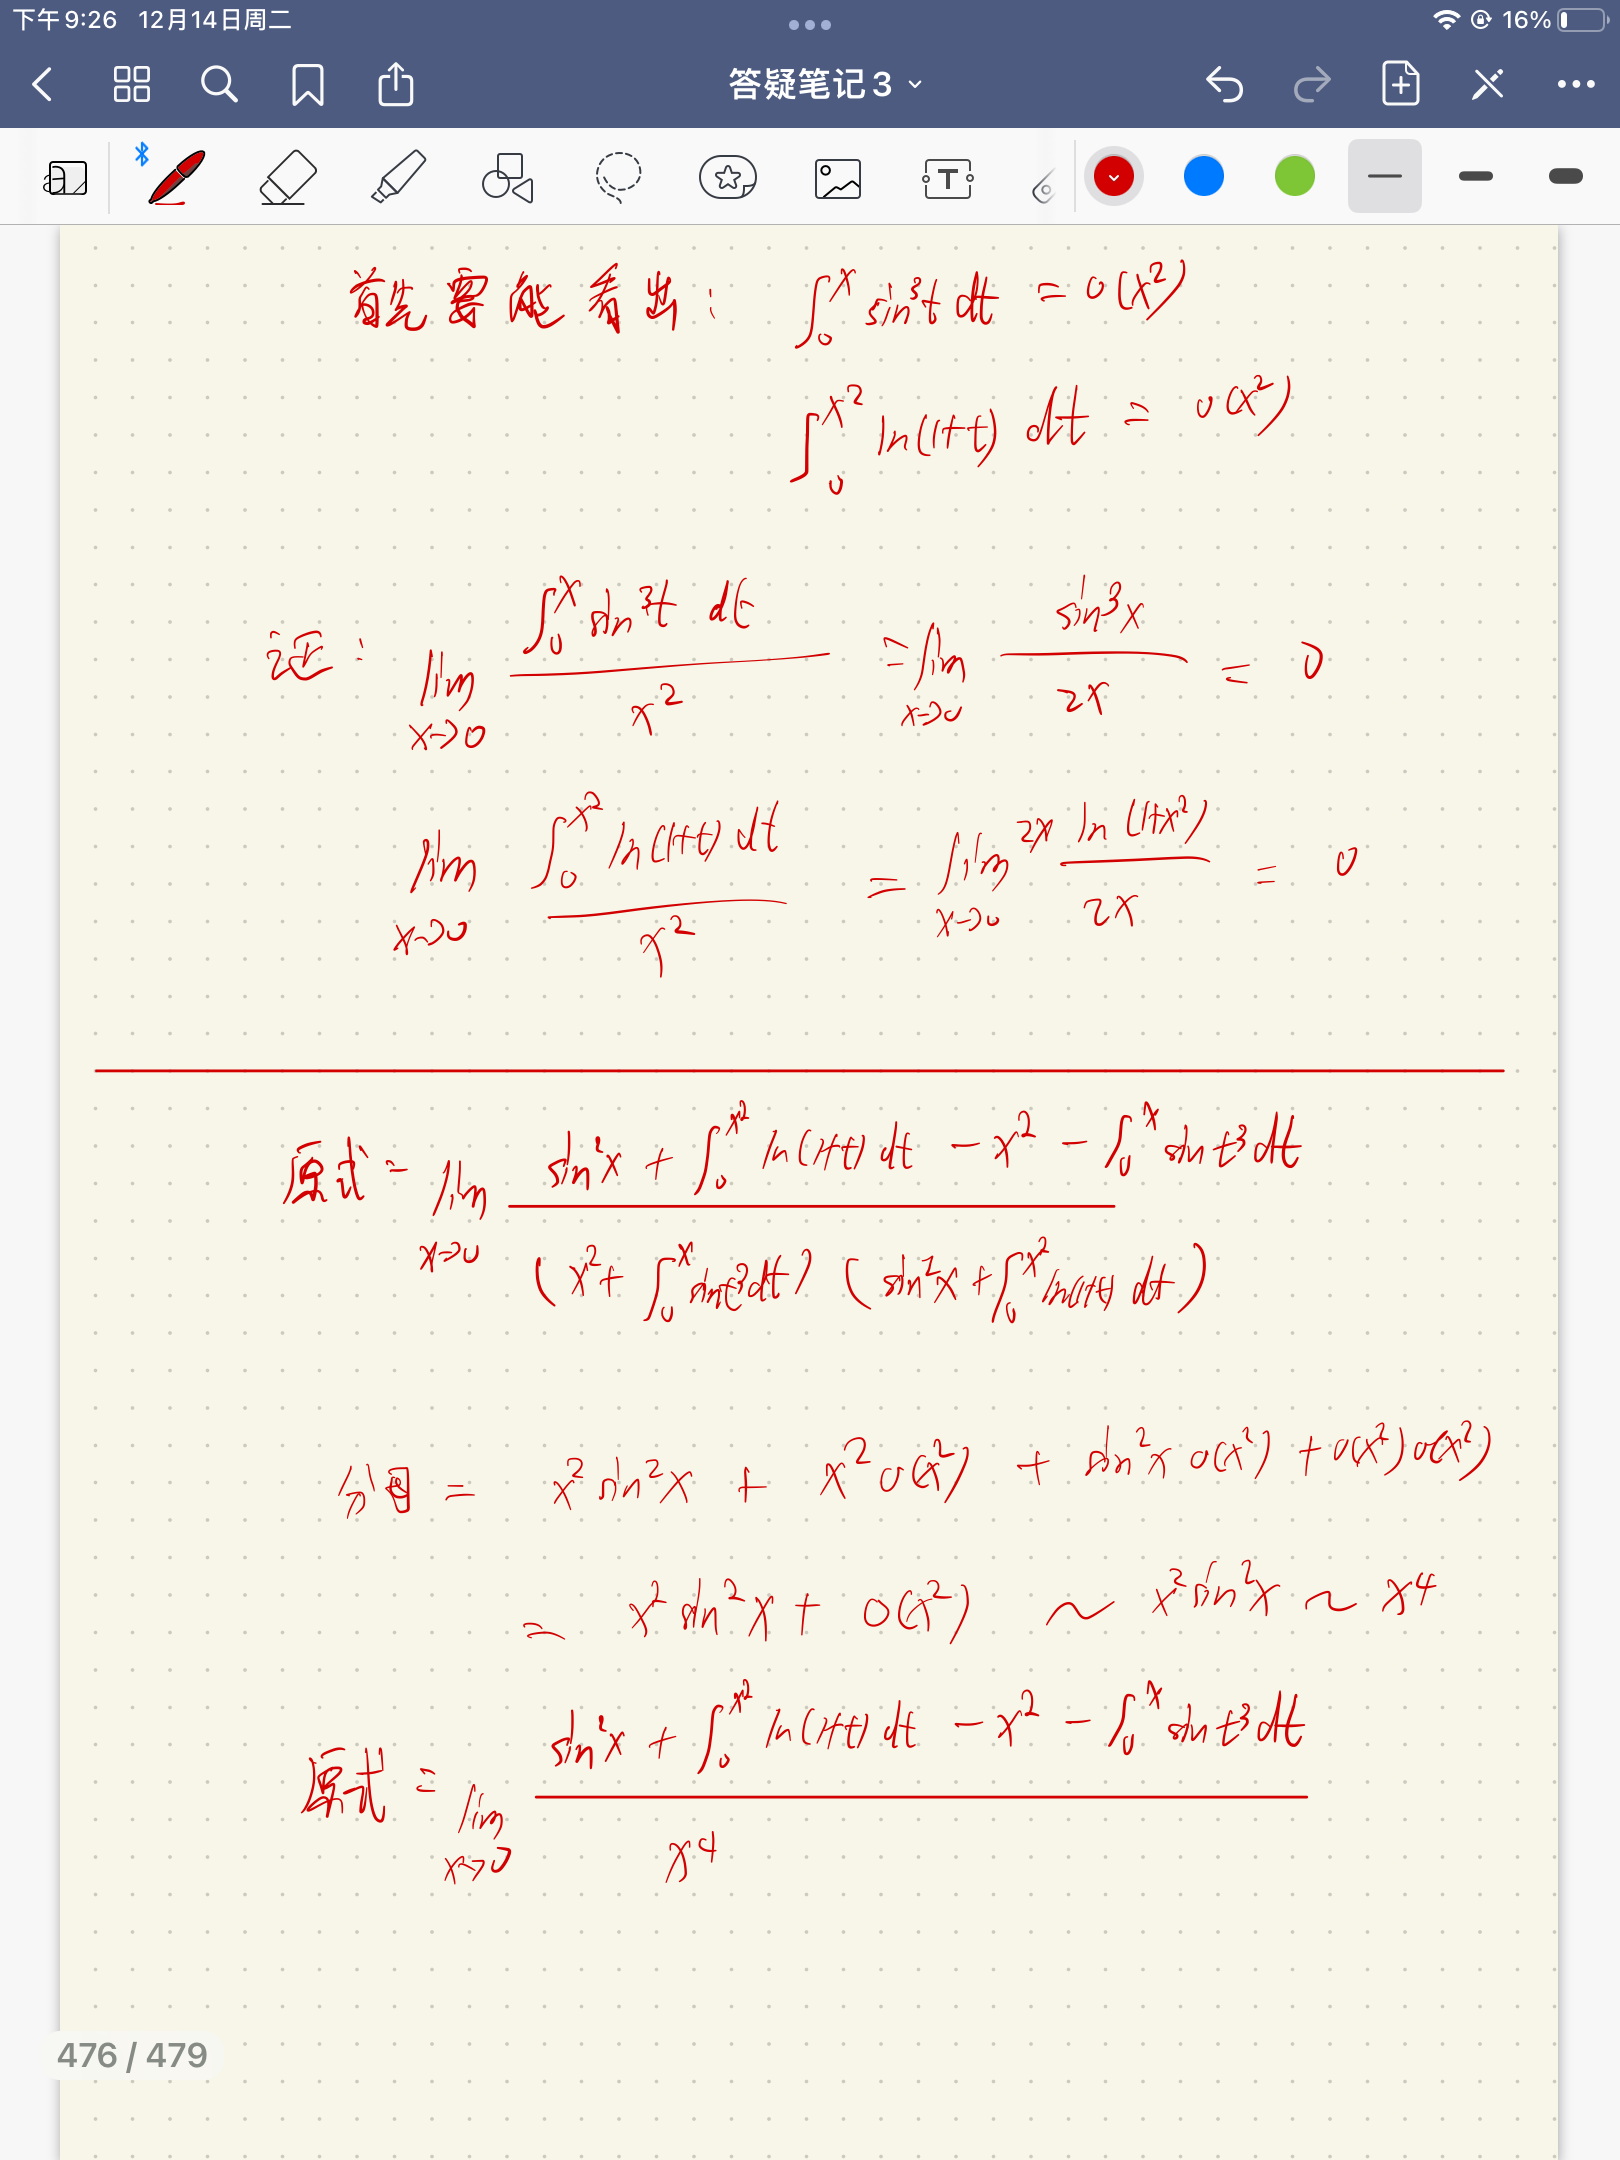 下午9:26 12月14日周二 16%
答疑笔记3
首先要能看出: ∫₀ˣ sin³t dt = o(x²)
∫₀^{x²} ln(1+t) dt = o(x²)
证: lim_{x→0} (∫₀ˣ sin³t dt)/(x²) = lim_{x→0} (sin³x)/(2x) = 0
lim_{x→0} (∫₀^{x²} ln(1+t) dt)/(x²) = lim_{x→0} (2x ln(1+x²))/(2x) = 0
原式 = lim_{x→0} (sin²x + ∫₀^{x²} ln(1+t) dt - x² - ∫₀ˣ sin t³ dt)/((x² + ∫₀ˣ sin t³ dt) (sin²x + ∫₀^{x²} ln(1+t) dt))
分母 = x² sin²x + x² o(x²) + sin²x o(x²) + o(x²) o(x²)
= x² sin²x + o(x²) ~ x² sin²x ~ x⁴
原式 = lim_{x→0} (sin²x + ∫₀^{x²} ln(1+t) dt - x² - ∫₀ˣ sin t³ dt)/(x⁴)
476 / 479